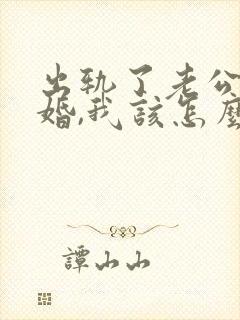 出轨了老公
婚,我该怎麼
譚山山